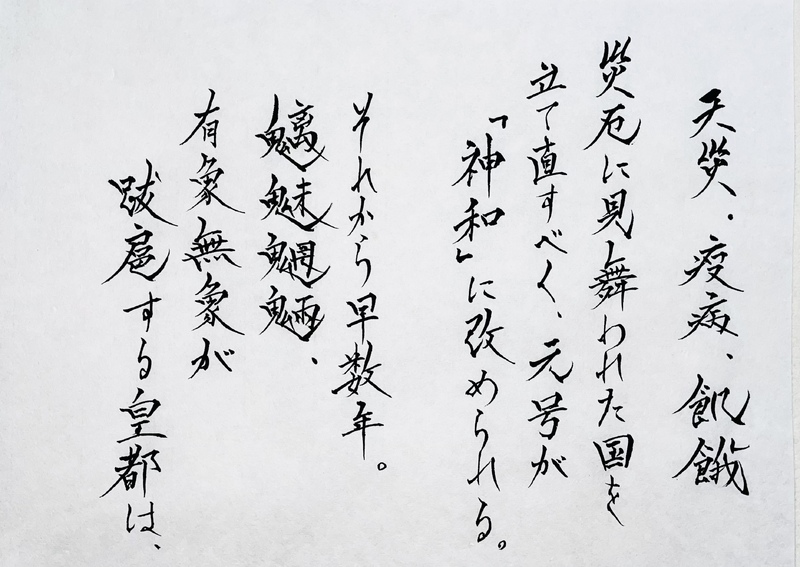 天災、疫病、飢餓
災厄に見舞われた国を
立て直すべく、元号が
「神和」に改められる。
それから早数年。
魑魅魍魎、
有象無象が
跋扈する皇都は、